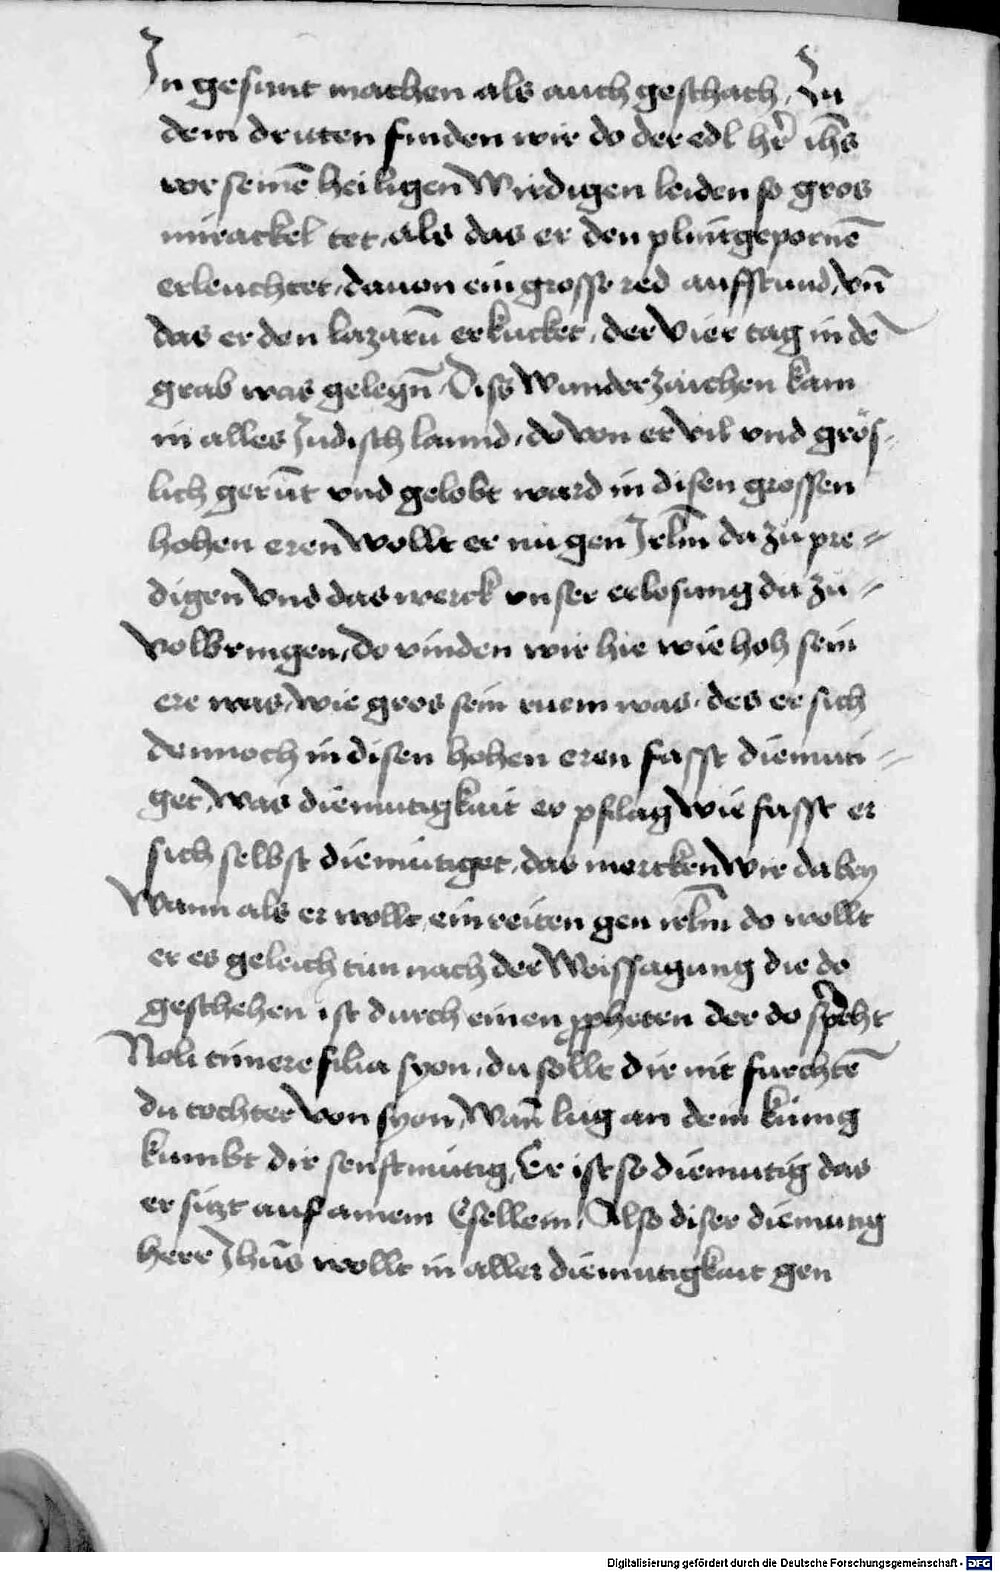 In gesunt machen als auch geschach, Zu
dem dritten finden wir do der edl hr̃ ihs̃
vor seinē heiligen Wirdigen leiden so gros
mirackel tet, als das er den plintgepornē
erleuchtet, dauon ein grosse red aufstund, vn̄
das er den lazarū erkucket, der vier tag in dē
grab was gelegn̄ Diss Wunderzaichen kam
in alles Judisch lannd, do von er vil vnd grös-
lich gerūt vnd gelobt ward in disen grossen
hohen eren Wollt er nu gen Jrlm̄ da zu pre=
digen Vnd das werck vnser erlosung da zu=
volbringen, Do vinden wir hie wie hoh sein
ere was, wie gros sein ruem was, des er sich
dennoch in disen hohen eren fasst diemuti=
get, was diemutigkait er pflag wie fasst er
sich selbst diemutiget, das mercken Wir da bey
Wann als er wollt einreiten gen irlm̄ do wollt
er es geleich tun nach der Weissagung die do
geschehen ist durch einen ppheten der do sprcht
Noli timere filia syon, du söllt dir nit furchtē
du tochter von syon, Wan̄ lug an dein kunig
kumbt dir senftmutig, Er ist so diemutig das
er sitzt auf ainem Esellein, Also diser diemutig
herr Jhūs wollt in aller diemutigkait gen
Digitalisierung gefördert durch die Deutsche Forschungsgemeinschaft - DFG